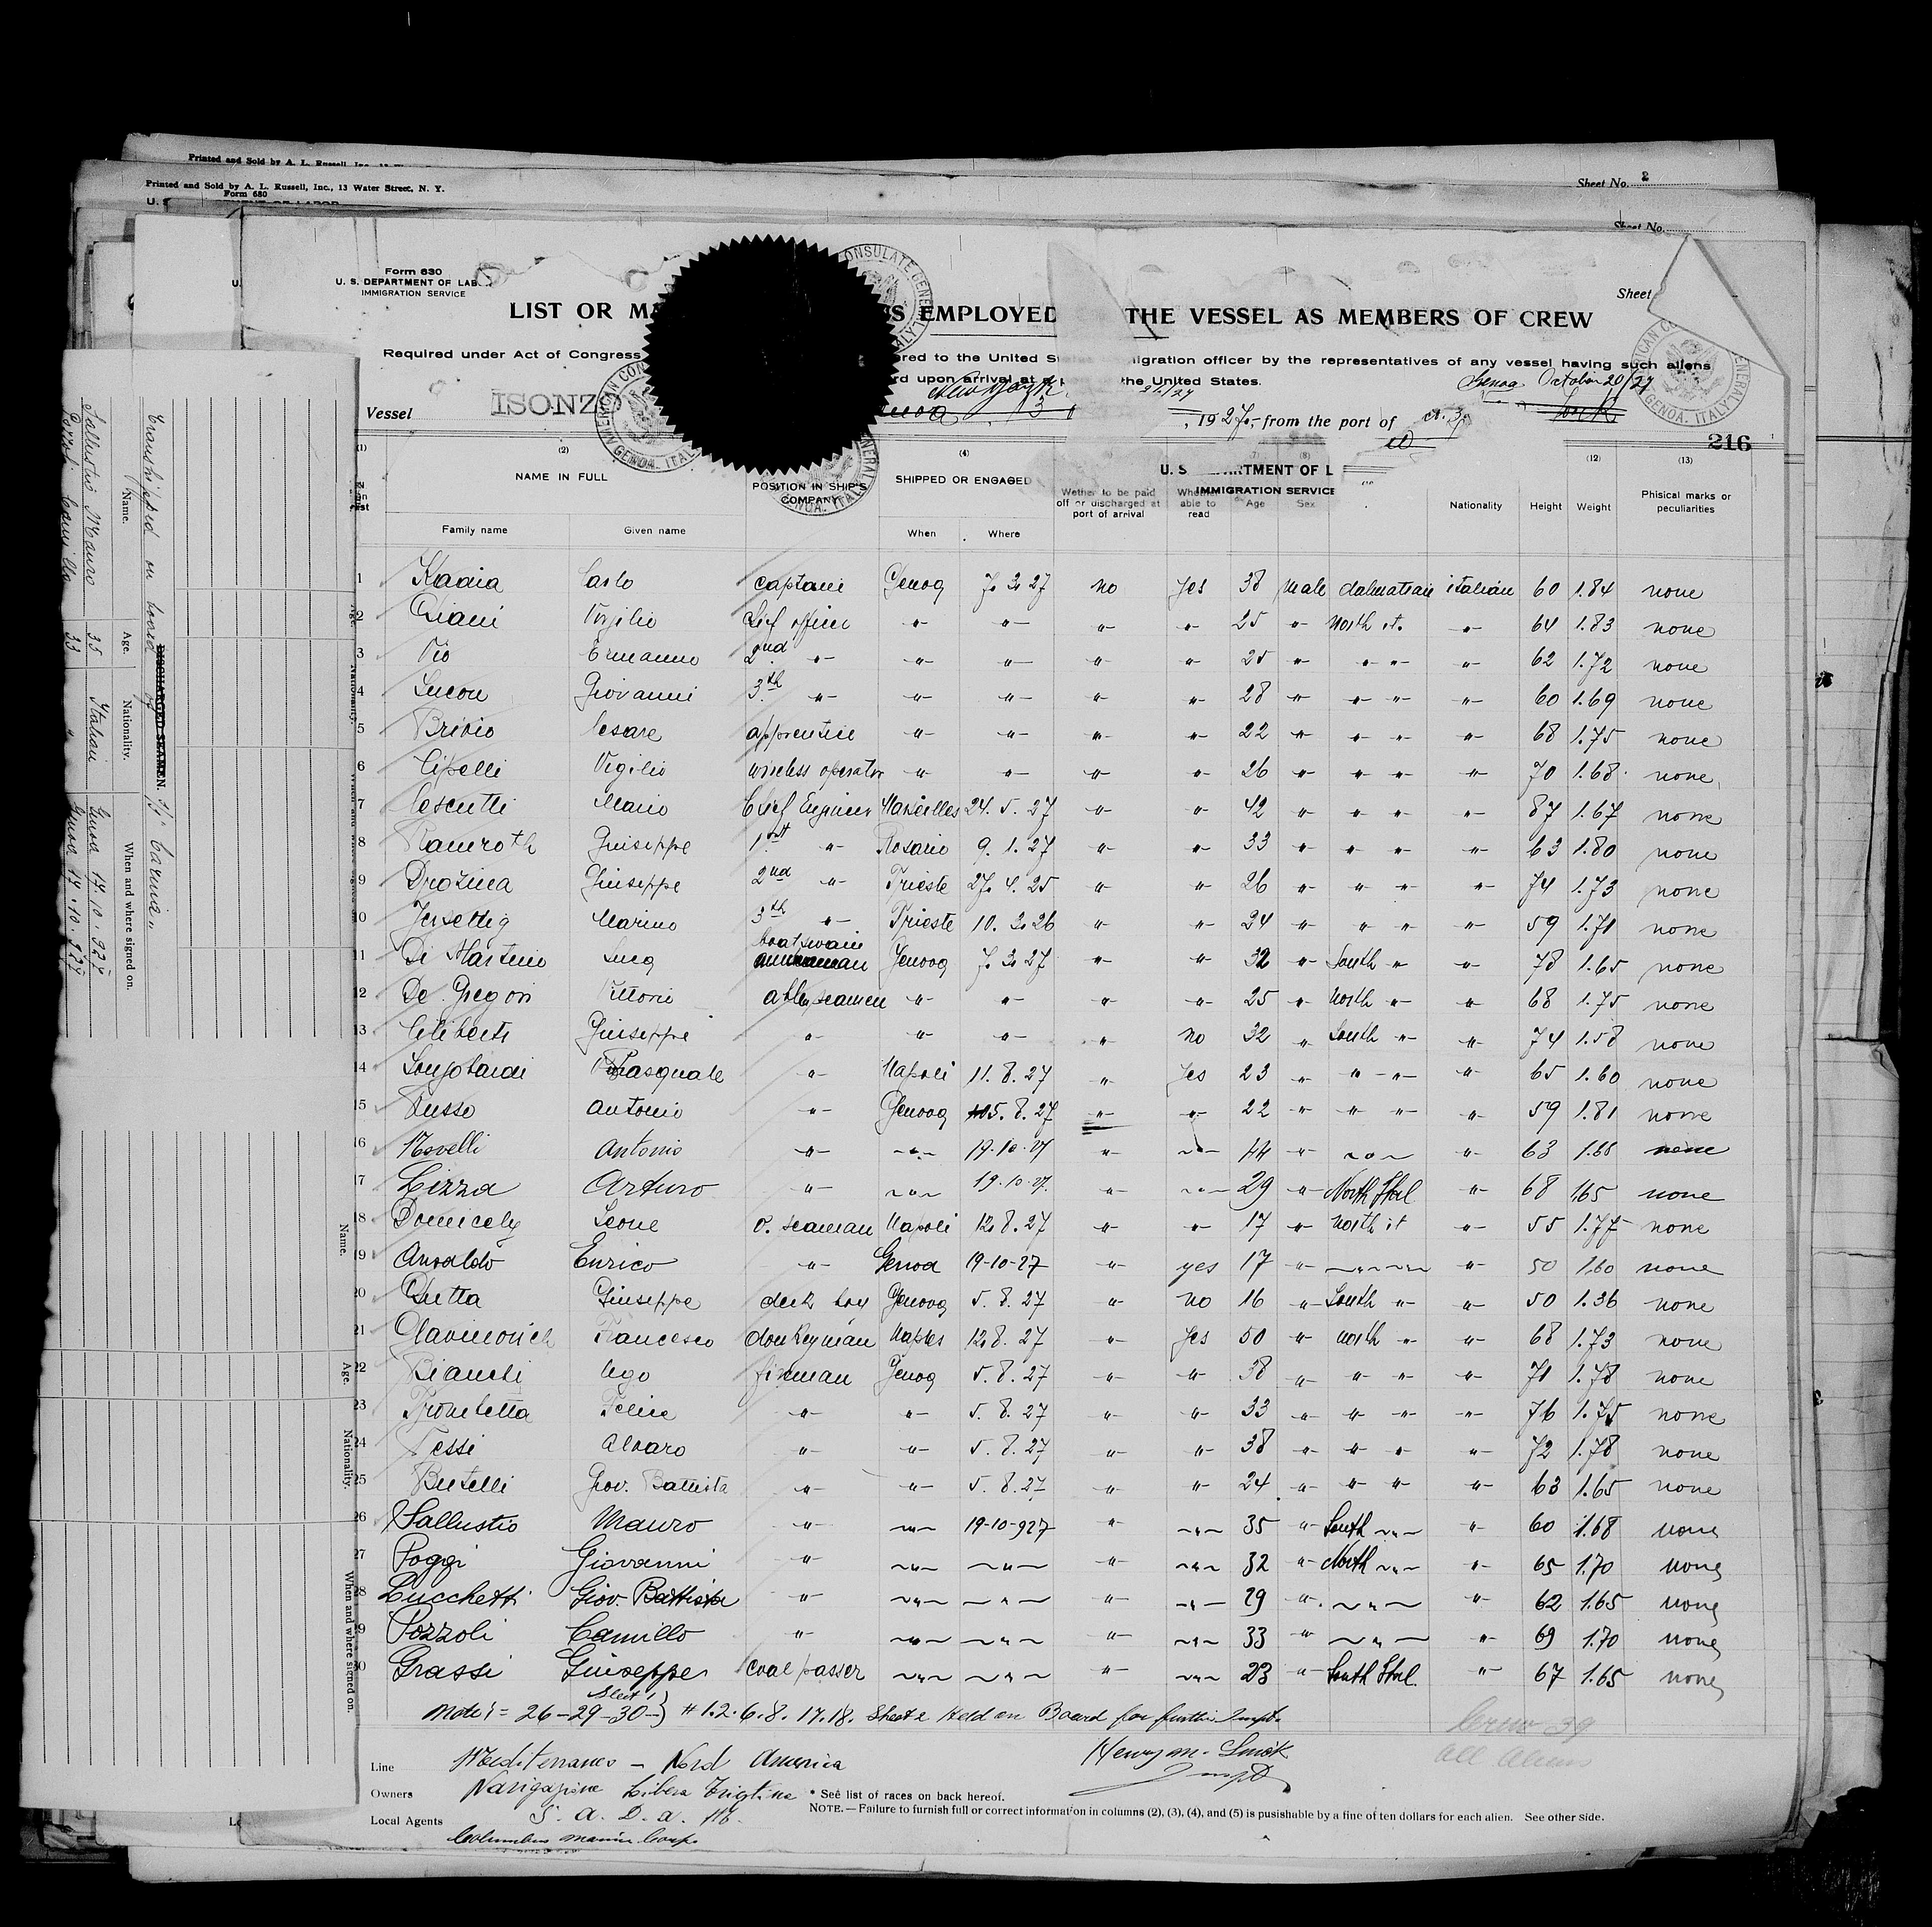 Printed and Sold by A. L. Russell, Inc.,
Printed and Sold by A. L. Russell, Inc., 13 Water Street, N. Y.
Form 680
Sheet No. 2
Sheet No.
Form 630
U. S. DEPARTMENT OF LAB
IMMIGRATION SERVICE
Sheet
LIST OR M S EMPLOYED THE VESSEL AS MEMBERS OF CREW
Required under Act of Congress red to the United St igration officer by the representatives of any vessel having such aliens
rd upon arrival at the United States.
New York Genoa October 20/27
Vessel ISONZ , 1927, from the port of
216
(1) (2) (4) (7) (8) (12) (13)
U. S RTMENT OF L
IMMIGRATION SERVICE
NAME IN FULL POSITION IN SHIP'S COMPANY SHIPPED OR ENGAGED Wether to be paid off or discharged at port of arrival Whether able to read Age Sex Nationality Height Weight Phisical marks or peculiarities
Family name Given name When Where
1 Carlo captain Genoa 7.3.27 no yes 38 male dalmatian italian 60 1.84 none
2 Virgilio officer " " " " 25 " North it. " 64 1.83 none
3 Vio Ermanno 2nd " " " " " 25 " " " " 62 1.72 none
4 Giovanni 3th " " " " " 28 " " " " 60 1.69 none
5 Brivio Cesare apprentice " " " " 22 " " " " 68 1.75 none
6 Cipelli Virgilio wireless operator " " " " 26 " " " " 70 1.68 none
7 Cescutti Mario Chief Engineer Marseilles 24.5.27 " " 42 " " " " 87 1.67 none
8 Ramroth Giuseppe 1st " Rosario 9.1.27 " " 33 " " " " 63 1.80 none
9 Drozina Giuseppe 2nd " Trieste 27.4.25 " " 26 " " " " 74 1.73 none
10 Jersettig Marino 3th " Trieste 10.3.26 " " 24 " " " " 59 1.71 none
11 Di Martino Luca boatswain Genoa 7.3.27 " " 32 " South " " 78 1.65 none
12 De Gregori Vittorio able seamen " " " " 25 " North " " 68 1.75 none
13 Ciliberti Giuseppe " " " " no 32 " South " " 74 1.58 none
14 Pasquale " Napoli 11.8.27 " yes 23 " " " " 65 1.60 none
15 Russo Antonio " Genoa 5.8.27 " " 22 " " " " 59 1.81 none
16 Novelli Antonio " " 19.10.27 " " 44 " " " 63 1.68 none
17 Lizza Arturo " " 19.10.27 " " 29 " North Ital " 68 165 none
18 Leone o. seaman Napoli 12.8.27 " " 17 " North it " 55 1.77 none
19 Ansaldo Enrico " Genoa 19-10-27 " yes 17 " " " 50 1.60 none
20 Giuseppe deck boy Genoa 5.8.27 " no 16 " South " " 50 1.36 none
21 Francesco donkeyman Naples 12.8.27 " yes 50 " north " " 68 1.73 none
22 Bianchi Ugo fireman Genoa 5.8.27 " " 38 " " " " 71 1.78 none
23 Trombetta Felice " " 5.8.27 " " 33 " " " " 76 1.75 none
24 Tessi Alvaro " " 5.8.27 " " 38 " " " " 72 1.78 none
25 Butelli Giov. Battista " " 5.8.27 " " 24 " " " " 63 1.65 none
26 Sallustio Mauro " " 19-10-927 " " 35 " South " " 60 1.68 none
27 Poggi Giovanni " " " " " 32 " North " " 65 1.70 none
28 Lucchetti Giov. Battista " " " " " 29 " " " 62 1.65 none
29 Pozzoli Camillo " " " " " 33 " " " 69 1.70 none
30 Grassi Giuseppe coal passer " " " " 23 " South Ital. " 67 1.65 none
Sheet 1
Note: = 26-29-30 } # 1.2.6.8.17.18. Sheet 2 Held on Board for further Inspt.
Crew 39
all Aliens
Line Mediterraneo - Nord America
Henry M. Smok
Inspt
Owners Navigazione Libera Triestina
* See list of races on back hereof.
NOTE.—Failure to furnish full or correct information in columns (2), (3), (4), and (5) is pusishable by a fine of ten dollars for each alien. See other side.
Local Agents S. A. D. A. M.
Columbus Marine Corp.
Transhipped on board of S/S "Carnia"
DISCHARGED SEAMEN.
Name. Age. Nationality. When and where signed on.
Sallustio Mauro 35 Italian Genoa 17.10.927
Pozzoli Camillo 33 " Genoa 17.10.927
Name. Age. Nationality. When and where signed on.